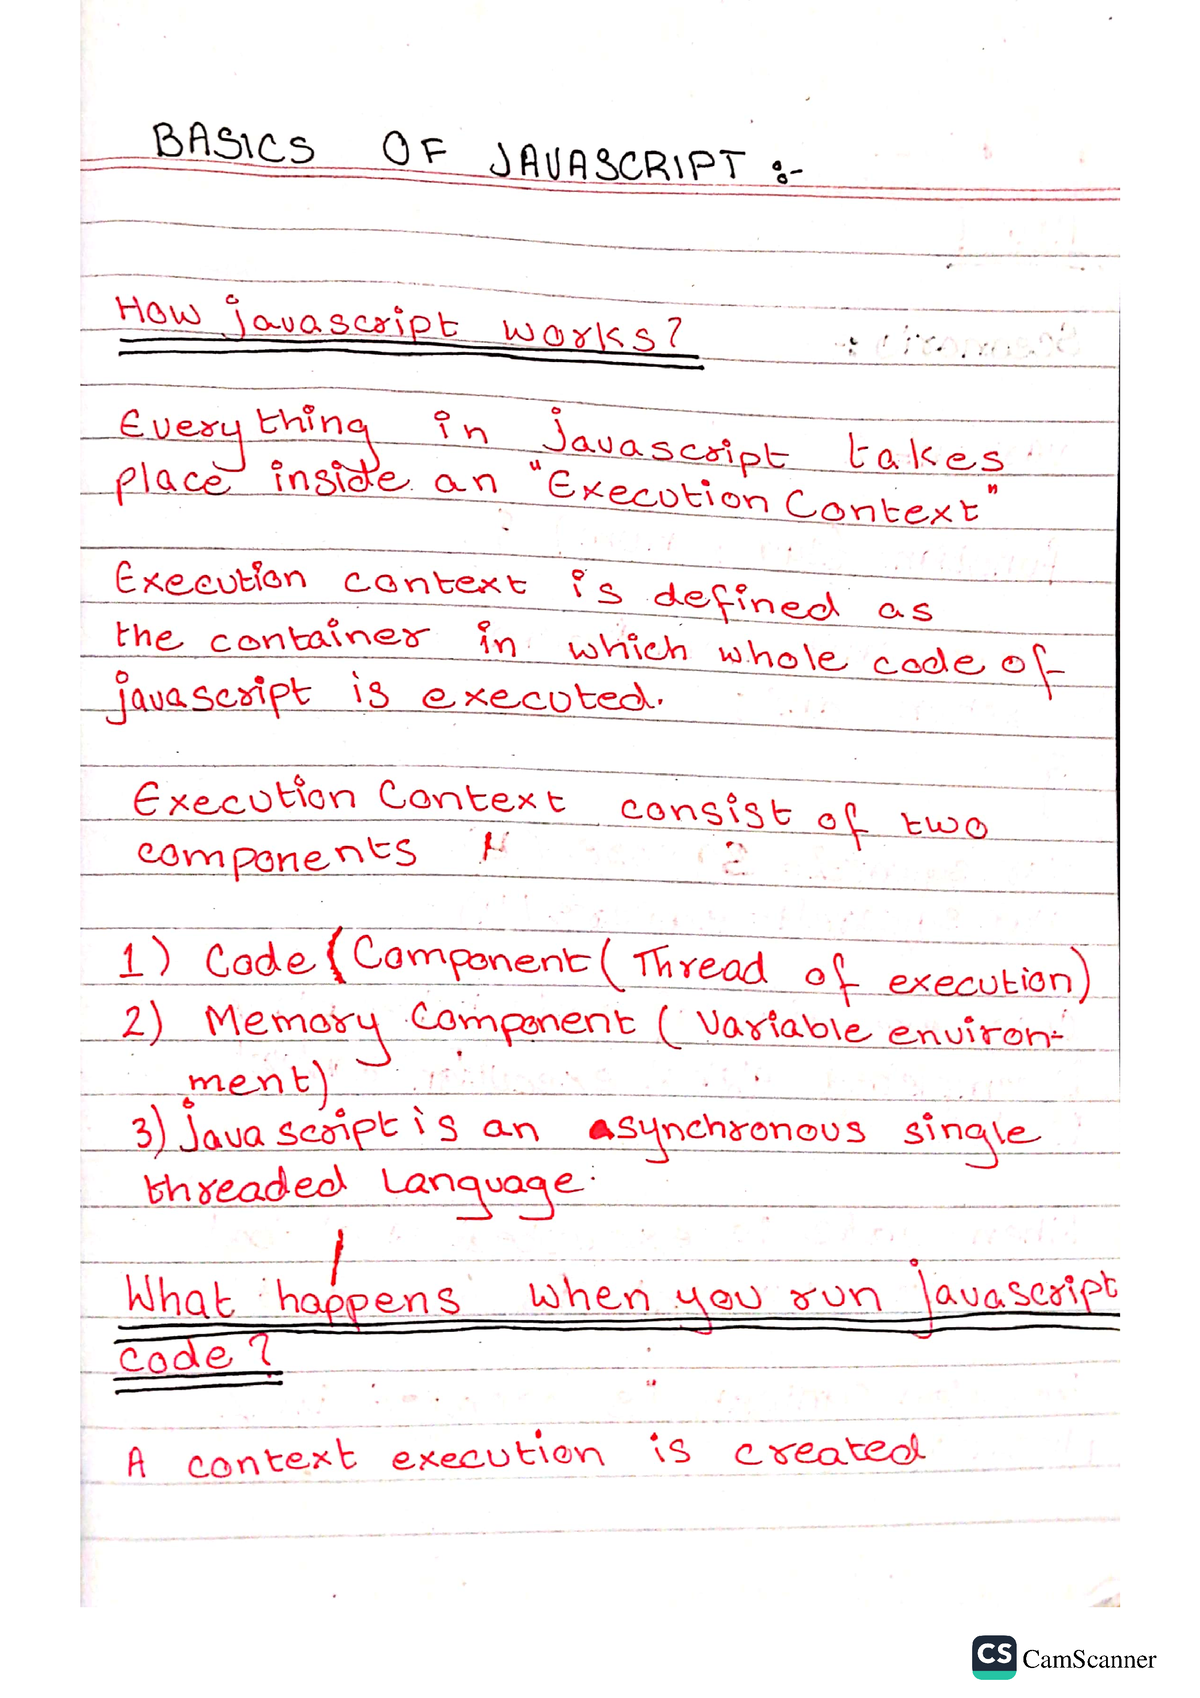 BASICS OF JAVASCRIPT :-
How javascript works?
Everything in javascript takes
place inside an "Execution Context"
Execution context is defined as
the container in which whole code of
javascript is executed.
Execution Context consist of two
components
1) Code (Component ( Thread of execution)
2) Memory Component ( Variable environ-
ment)
3) javascript is an asynchronous single
threaded Language.
What happens when you run javascript
code?
A context execution is created
CS CamScanner